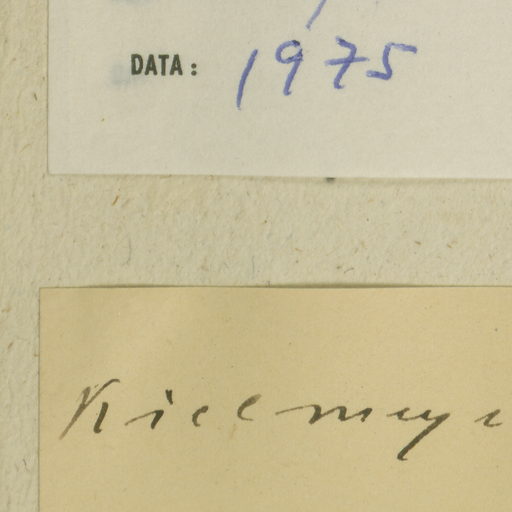 DATA: 1975
Kielmeye